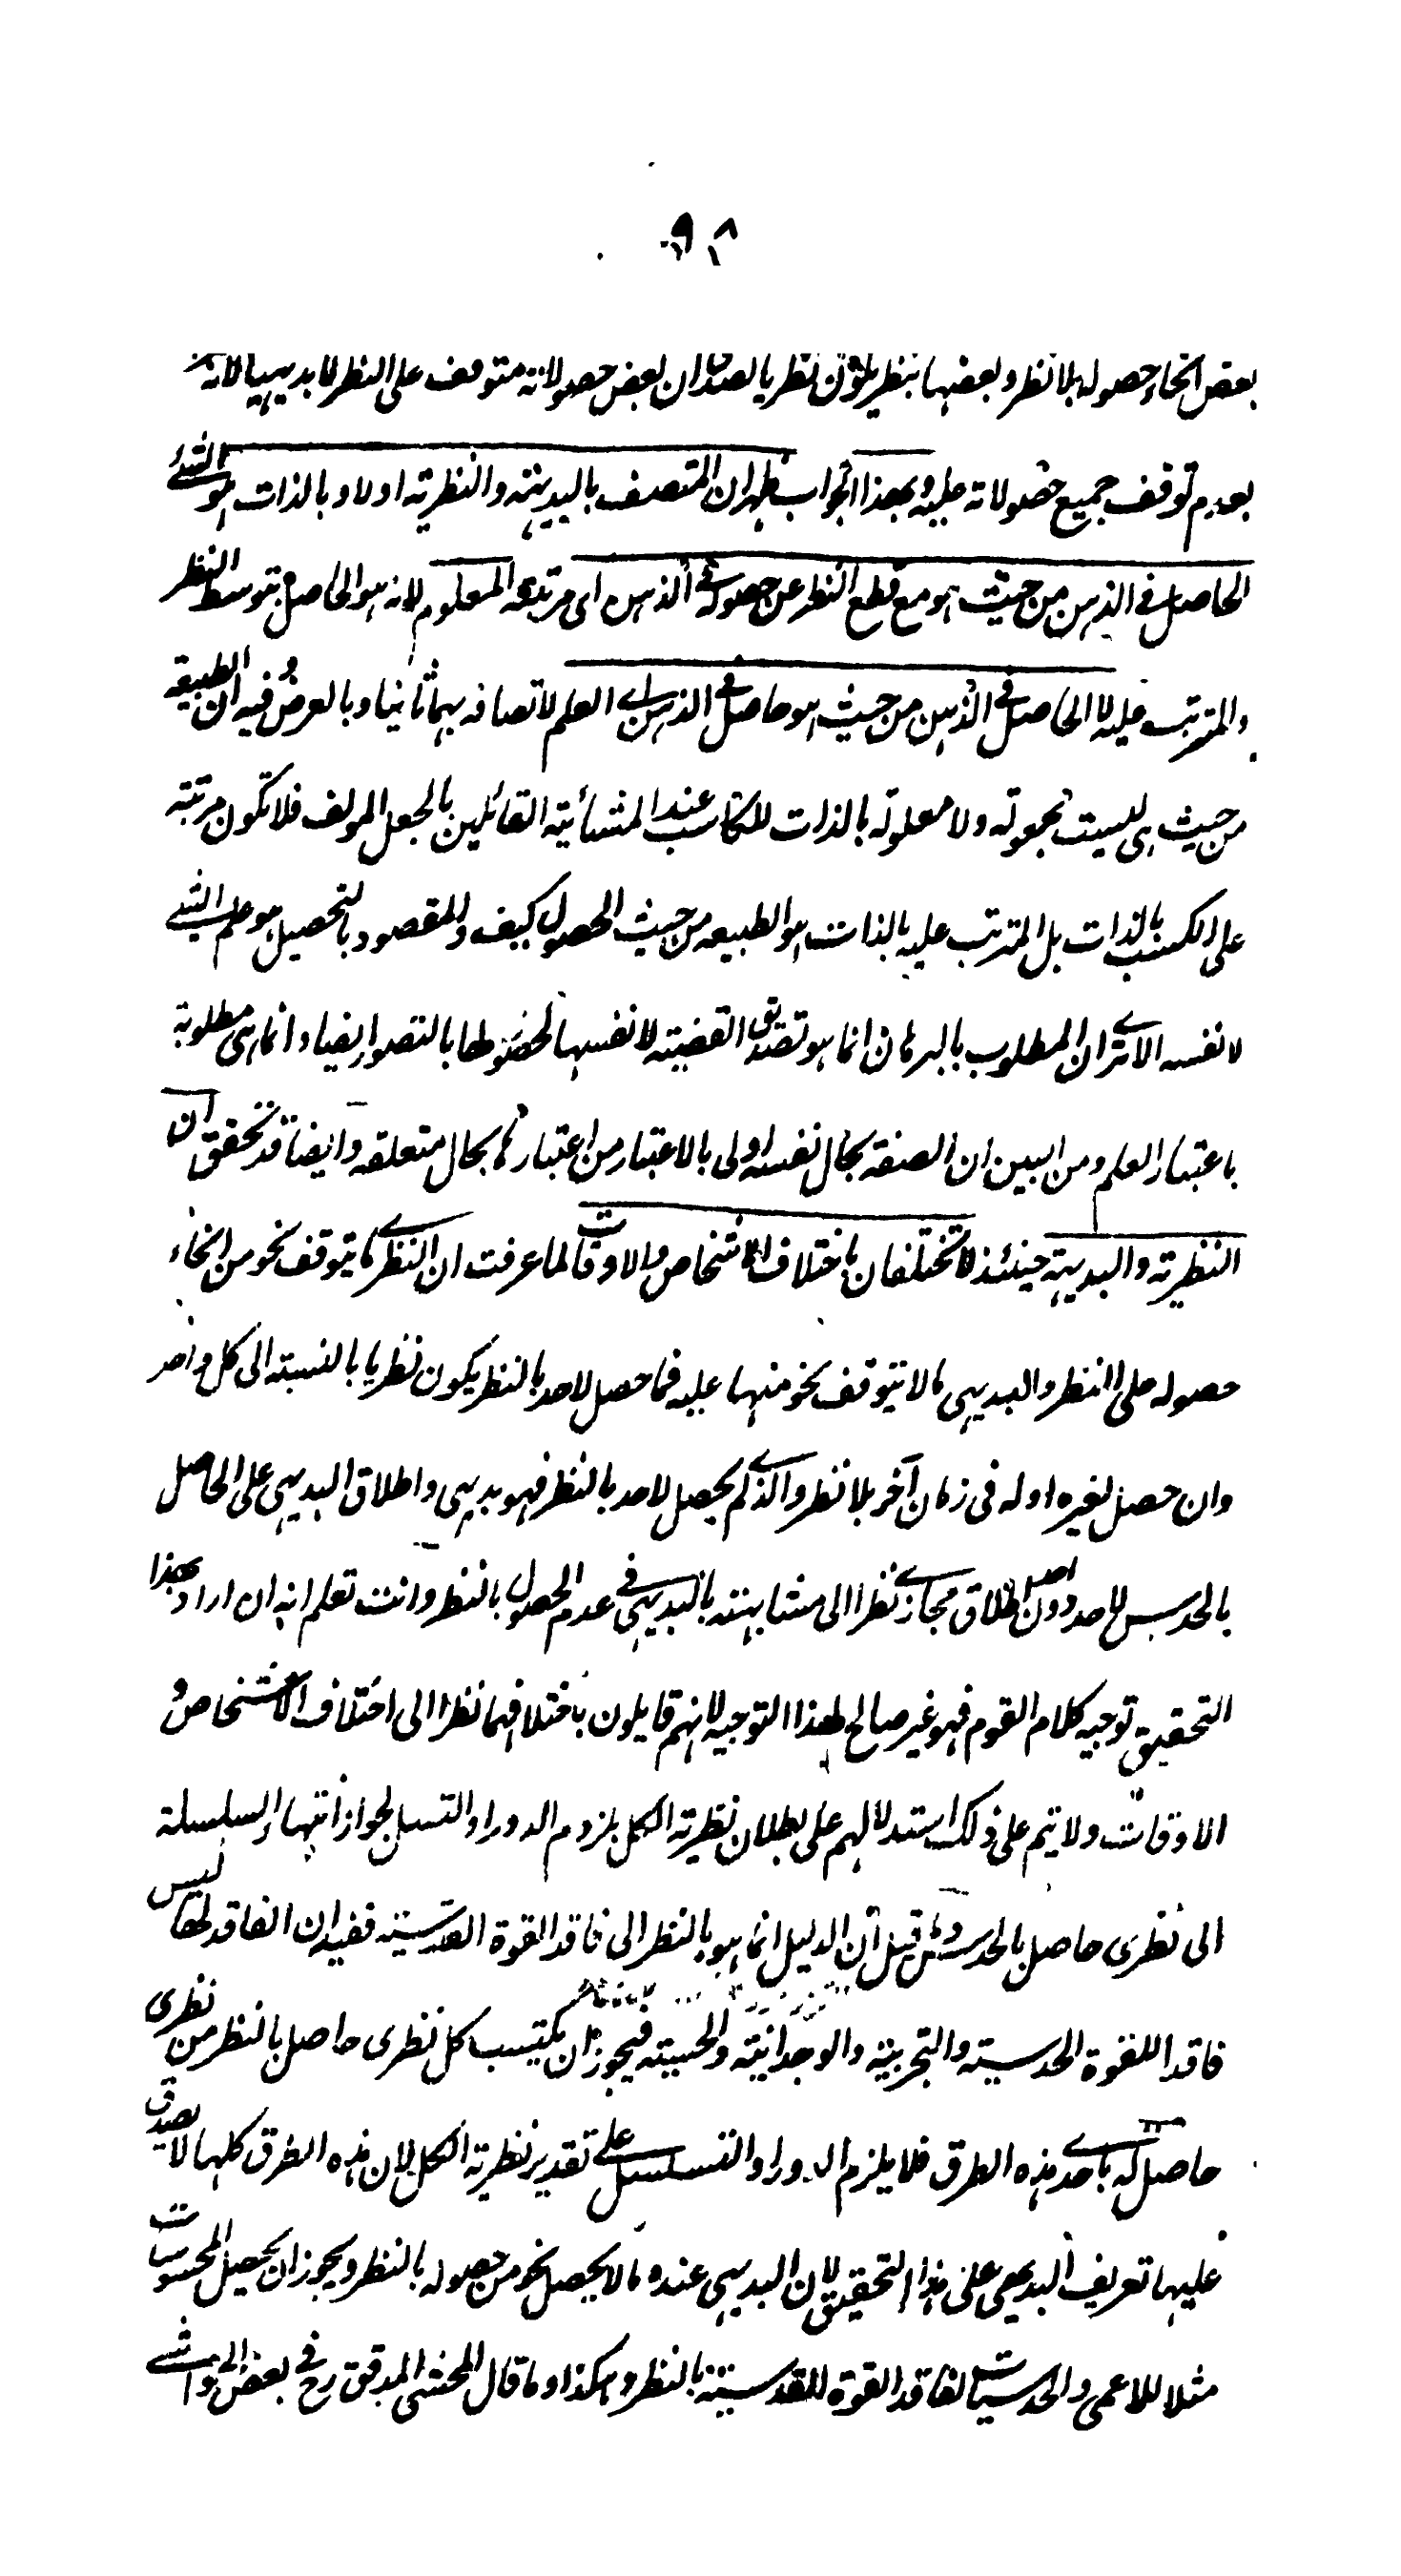 ٩٨
بعض انحاء حصوله بلا نظر وبعضها بنظر يكون نظريا لصدق ان بعض حصولاته متوقف على النظر لا بديهيا لانه
بعدم توقف جميع حصولاته عليه وبهذا الجواب ظهر ان المتصف بالبديهة والنظرية اولا وبالذات هو الشئ
الحاصل في الذهن من حيث هو مع قطع النظر عن حصوله في الذهن اى مرتبة المعلوم لانه هو الحاصل بتوسط النظر
والمترتب عليه لا الحاصل في الذهن من حيث هو حاصل في الذهن اى العلم لاتصافه بهما ثانيا وبالعرض وفيه ان الطبيعة
من حيث هى ليست مجعولة ولا معلولة بالذات للكاسب عند المشائية القائلين بالجعل المولف فلا تكون مرتبة
على الكسب بالذات بل المترتب عليه بالذات هو الطبيعه من حيث الحصول كيف والمقصود بالتحصيل هو علم الشئ
لا نفسه الا ترى ان المطلوب بالبرهان انما هو تصديق القضية لا نفسها لحصولها بالتصور ايضا وانما هى مطلوبة
باعتبار العلم ومن البين ان الصفة بحال نفسه اولى بالاعتبار من اعتبارها بحال متعلقه وايضا قد تحقق ان
النظرية والبديهة حينئذ لا تختلفان باختلاف الاشخاص والاوقات لما عرفت ان النظرى ما يتوقف نحو من انحاء
حصوله على النظر والبديهى ما لا يتوقف نحو منها عليه فما حصل لاحد بالنظر يكون نظريا بالنسبة الى كل واحد
وان حصل لغيره او له فى زمان آخر بلا نظر والذى لم يحصل لاحد بالنظر فهو بديهى واطلاق البديهى على الحاصل
بالحدس لاحد دون احد اطلاق مجازى نظرا الى مشابهته بالبديهى في عدم الحصول بالنظر وانت تعلم انه ان اراد بهذا
التحقيق توجيه كلام القوم فهو غير صالح لهذا التوجيه لانهم قايلون باختلافهما نظرا الى اختلاف الاشخاص و
الاوقات ولا يتم على ذلك استدلالهم على بطلان نظرية الكل بلزوم الدور او التسلسل لجواز انتهاء السلسلة
الى نظرى حاصل بالحدس وما قيل ان الدليل انما هو بالنظر الى فاقد القوة القدسية ففيه ان الفاقد لها ليس
فاقدا للقوة الحدسية والتجربية والوجدانية والحسية فيجوز ان يكتسب كل نظرى حاصل بالنظر من نظرى
حاصل له باحد هذه الطرق فلا يلزم الدور او التسلسل على تقدير نظرية الكل لان هذه الطرق كلها لا يصدق
عليها تعريف البديهى على هذا التحقيق لان البديهى عنده ما لا يحصل نحو من حصوله بالنظر ويجوز ان يحصل المحسوسات
مثلا للاعمى والحدسيات لفاقد القوة القدسية بالنظر وهكذا وما قال المحشى المدقق رح في بعض الحواشى